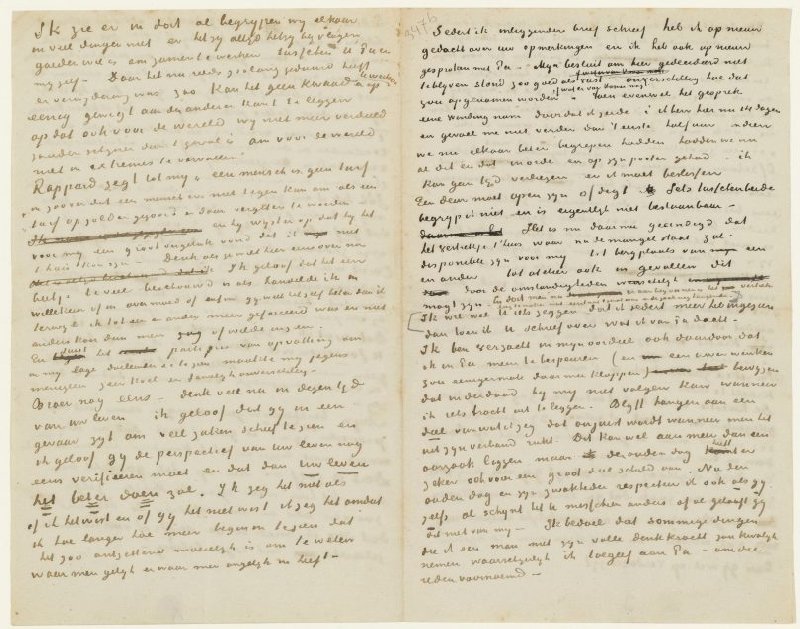 Ik zie er in dat al begrypen wy elkaar
in veel dingen niet en hetzy altyd hetzy by vlagen
goeden wil is om zamen te werken tusschen U Pa en
my zelf. Daar het nu reeds zoo lang geduurd heeft
er verwydering was zoo kan het geen kwaad
eenig gewigt aan den anderen kant te leggen
opdat ook voor de wereld wy niet meer verdeeld
zouden schynen dan 't geval is om voor de wereld
niet in extremes te vervallen.
Rappard zegt tot my een mensch is geen turf
in zoover dat een mensch er niet tegen kan om als een
turf op zolder gegooid en daar vergeten te worden
en hy wyst er op dat hy het
voor my een groot ongeluk vond dat ik niet
't huis kon zyn Denk als je wilt hier eens over na
Ik geloof dat het een
beetje te veel beschouwd is als handelde ik in
willekeur of in overmoed of enfin gy weet het zelf beter dan ik
terwyl ik tot een en ander meer geforceerd was en niet
anders kon dan men zag of wilde in zien.
En het party van opvatting om
in my lage doeleinden te zien maakte my jegens
menigten zeer koel en tamelyk onverschillig.
Broer nog eens – denk veel na in dezen tyd
van uw leven ik geloof dat gy in een
gevaar zyt om veel zaken scheef te zien en
ik geloof gy de perspectief van uw leven nog
eens verifieeren moet en dat dan uw leven
het beter doen zal. Ik zeg het niet als
of ik het wist en of gy het niet wist ik zeg het omdat
ik hoe langer hoe meer begin in te zien dat
het zoo ontzettend moeielyk is om te weten
waar men gelyk en waar men ongelyk in heeft –
Sedert ik inleggenden brief schreef heb ik op nieuw
gedacht over uw opmerkingen en ik heb ook op nieuw
gesproken met Pa – Myn besluit om hier gedecideerd niet
te blyven stond zoo goed als vast onverschillig hoe dat
zou opgenomen worden Toen evenwel het gesprek
eene wending nam doordat ik zeide: ik ben hier nu 14 dagen
en gevoel me niet verder dan 't eerste half uur indien
we nu elkaar beter begrepen hadden hadden we nu
al dit en dat in orde en op zyn poten gehad. ik
kan geen tyd verliezen en ik moet beslissen
Een deur moet open zyn of digt Iets tusschenbeide
begryp ik niet en is eigentlyk niet bestaanbaar –
Het is nu daarmee geeindigd dat
het vertrekje t' huis waar nu de mangel staat zal
disponible zyn voor my tot bergplaats van een
en ander tot atelier ook in gevallen dit
voor de omstandigheden wenschelyk
mogt zyn.
Ik wil wel 't iets zeggen dat ik sedert meer heb ingezien
dan toen ik U schreef over wat ik van Pa dacht –
Ik ben verzacht in myn oordeel ook doordat dat
ik in Pa meen te bespeuren (en een uwer wenken
zou eenigermate daarmee kloppen) bewyzen
dat inderdaad hy my niet volgen kan wanneer
ik iets tracht uit te leggen. Blyft hangen aan een
deel van wat ik zeg dat onjuist wordt wanneer men het
uit zyn verband rukt. Dit kan wel aan meer dan een
oorzaak liggen maar de ouden dag heeft er
zeker ook voor een groot deel schuld aan. Nu den
ouden dag en zyn zwakheden respecteer ik ook als gy
zelf al schynt het U misschien anders of al gelooft gy
dit niet van my – Ik bedoel dat sommige dingen
die ik een man met zyn volle denkkracht zou kwalyk
nemen waarschynlyk ik toegeef aan Pa – om die
reden voornoemd –